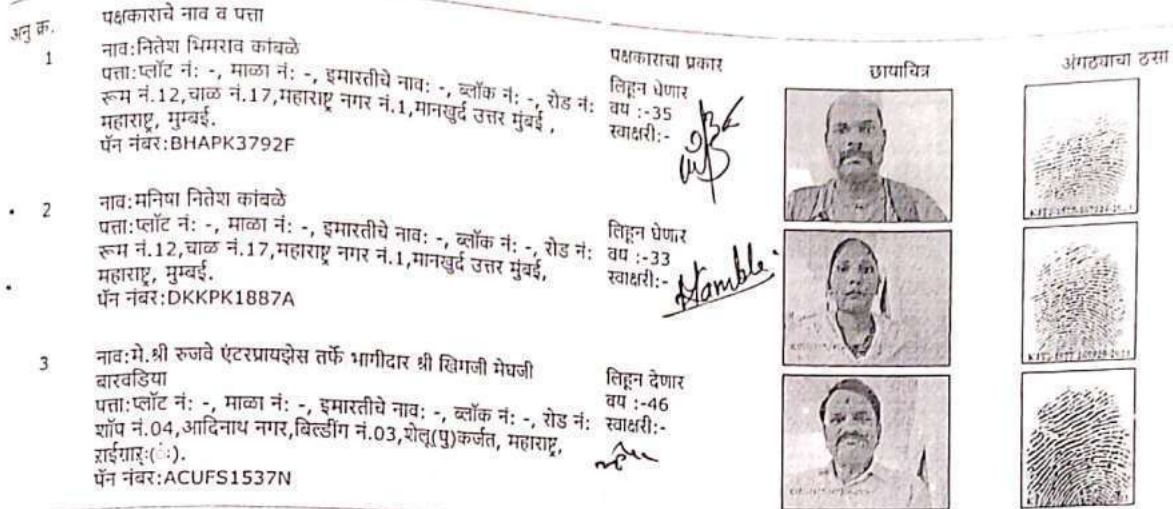 अनु क्र.
पक्षकाराचे नाव व पत्ता
पक्षकाराचा प्रकार
छायाचित्र
अंगठयाचा ठसा
1
नाव:नितेश भिमराव कांबळे
पत्ता:प्लॉट नं: -, माळा नं: -, इमारतीचे नाव: -, ब्लॉक नं: -, रोड नं:
रूम नं.12,चाळ नं.17,महाराष्ट्र नगर नं.1,मानखुर्द उत्तर मुंबई ,
महाराष्ट्र, मुम्बई.
पॅन नंबर:BHAPK3792F
लिहून घेणार
वय :-35
स्वाक्षरी:-
2
नाव:मनिषा नितेश कांबळे
पत्ता:प्लॉट नं: -, माळा नं: -, इमारतीचे नाव: -, ब्लॉक नं: -, रोड नं:
रूम नं.12,चाळ नं.17,महाराष्ट्र नगर नं.1,मानखुर्द उत्तर मुंबई,
महाराष्ट्र, मुम्बई.
पॅन नंबर:DKKPK1887A
लिहून घेणार
वय :-33
स्वाक्षरी:-
Kamble.
3
नाव:मे.श्री रुजवे एंटरप्रायझेस तर्फे भागीदार श्री खिमजी मेघजी
बारवडिया
पत्ता:प्लॉट नं: -, माळा नं: -, इमारतीचे नाव: -, ब्लॉक नं: -, रोड नं:
शॉप नं.04,आदिनाथ नगर,बिल्डींग नं.03,शेलू(पु)कर्जत, महाराष्ट्र,
पॅन नंबर:ACUFS1537N
लिहून देणार
वय :-46
स्वाक्षरी:-